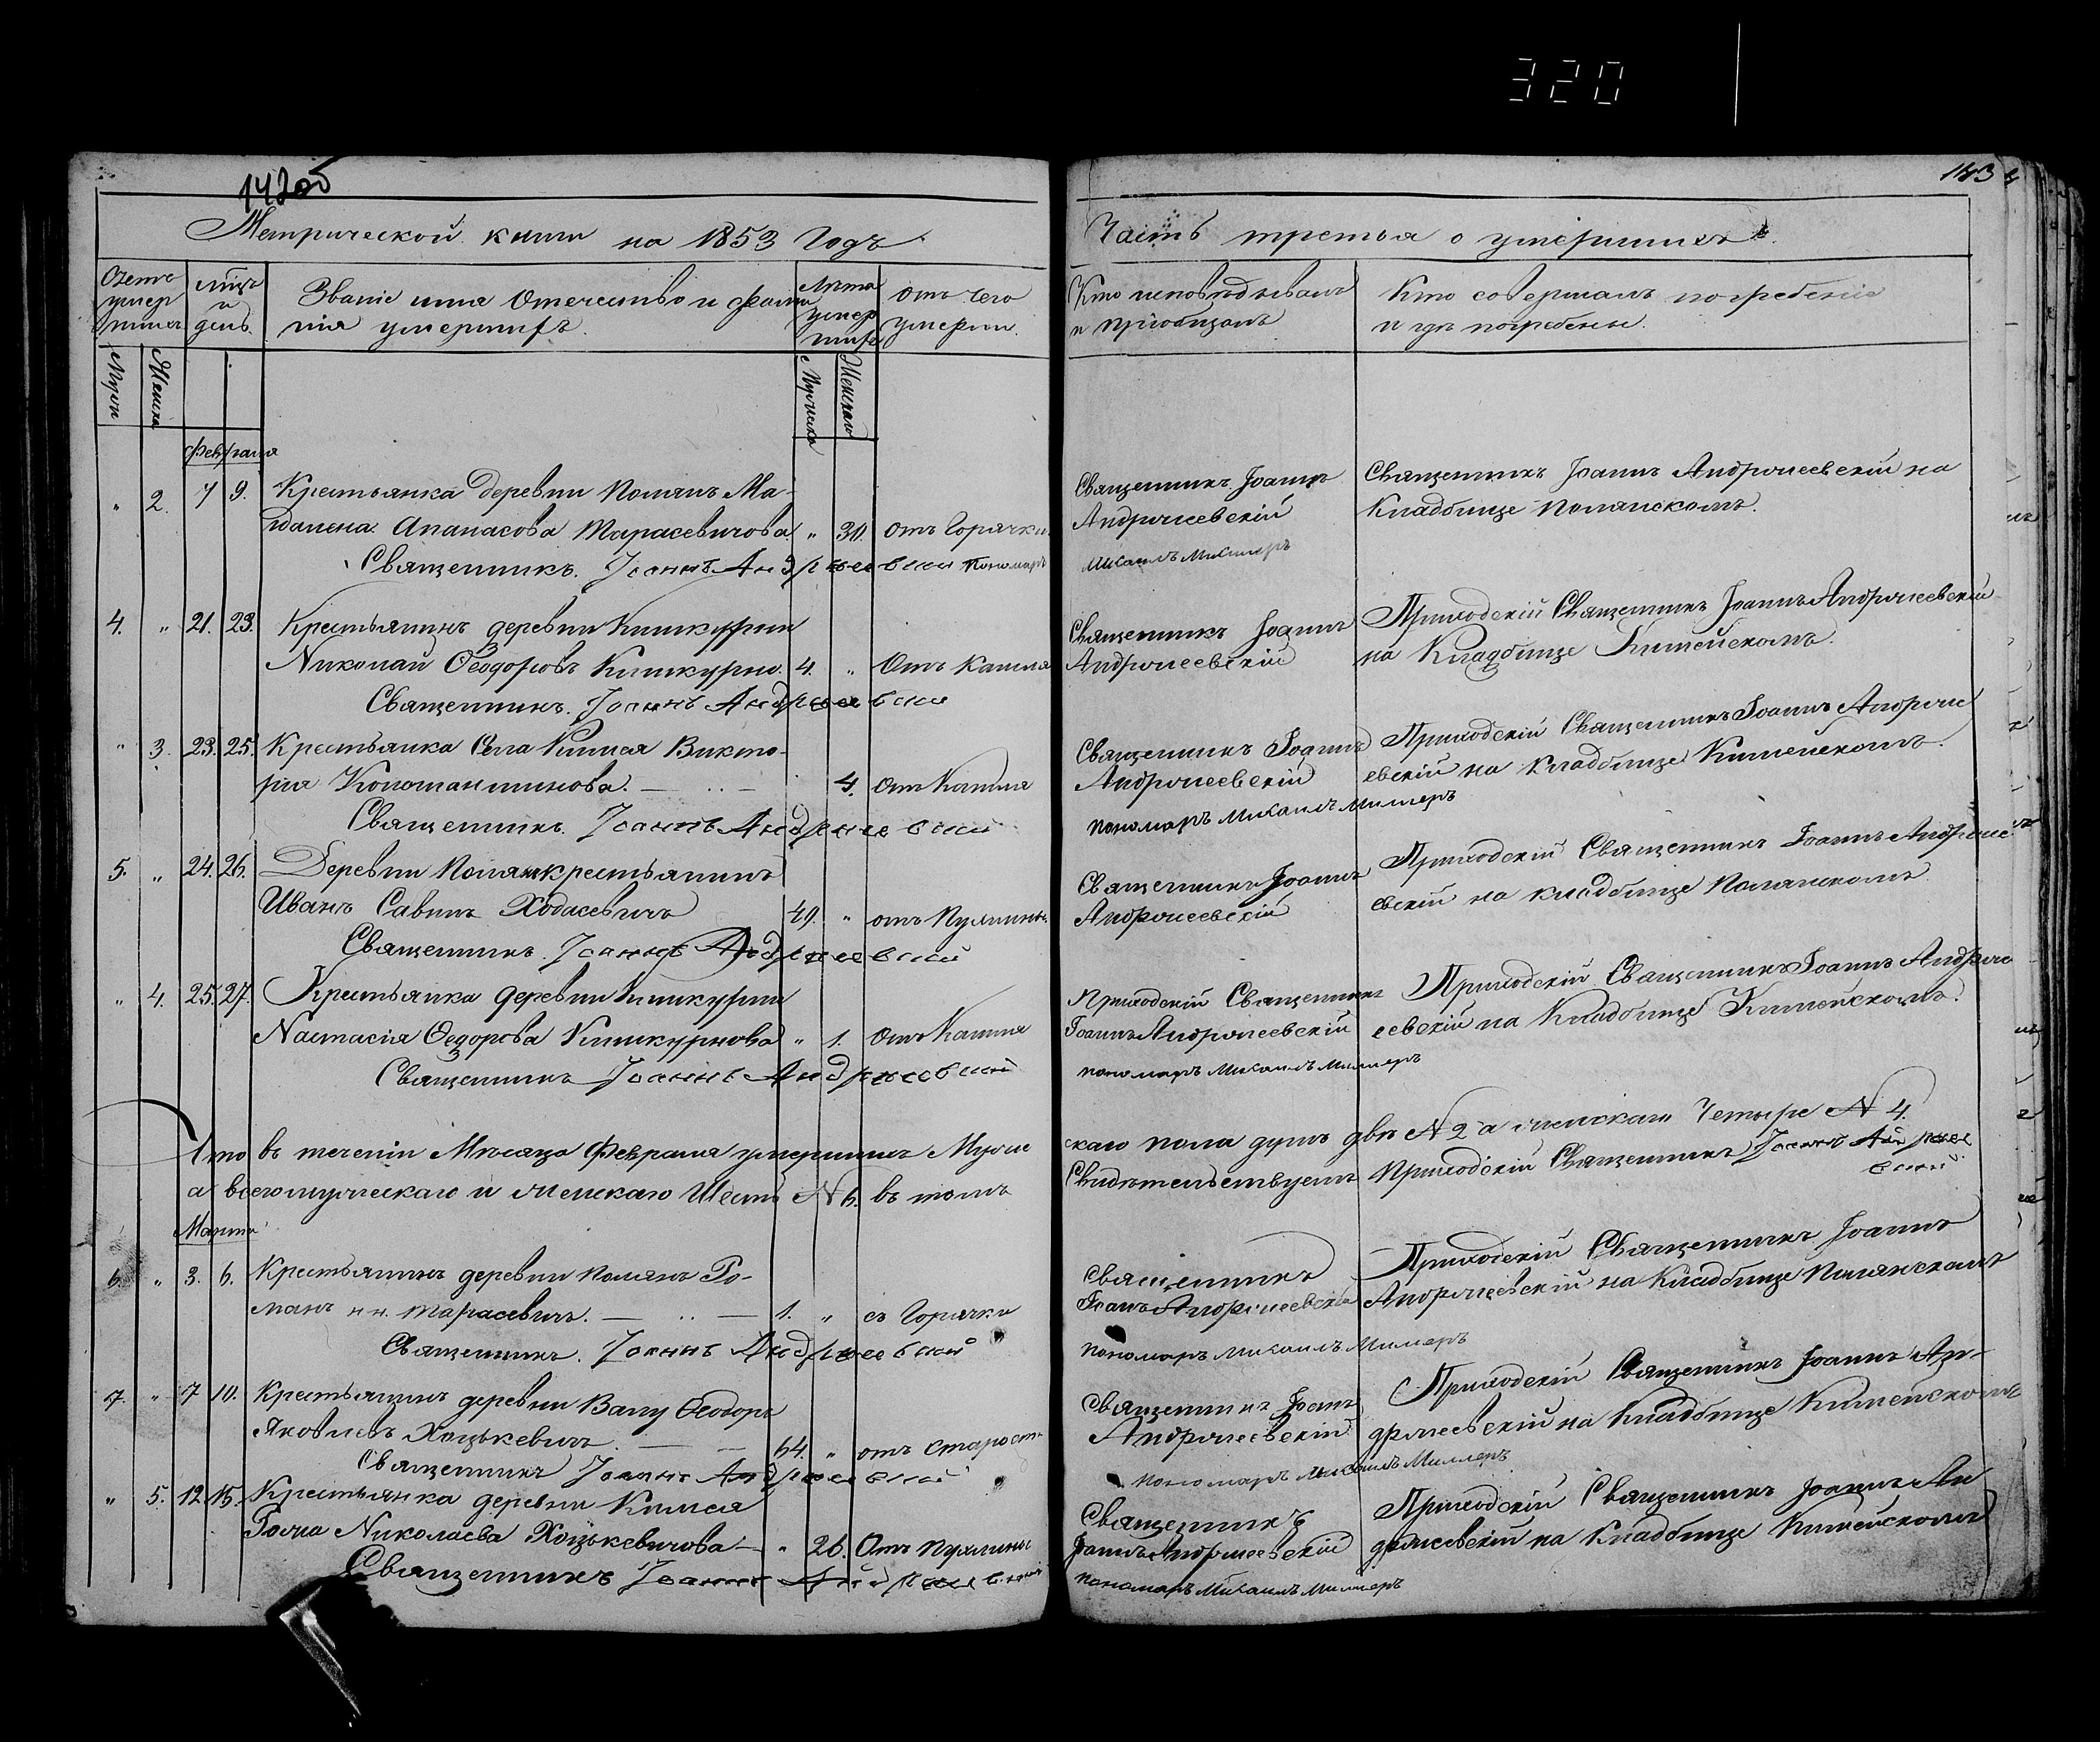 320
142об
143
Метрической книги на 1853 Годъ
Часть третья о умершихъ.
Счетъ умер шихъ
мцъ и день
Званіе имя Отечество и фами
лія умершихъ.
Лѣта умер шихъ
отъ чего умерли.
Кто исповѣдывалъ и пріобщалъ
Кто совершалъ погребеніе и гдѣ погребены.
Мужеска
Женскаго
Февраля
" 2. 7 9. Крестьянка деревни Полянъ Ма-
гдалена Апанасова Тарасевичова " 30. отъ Горячки
Священникъ Іоаннъ Андрушевскій Пономаръ
Священникъ Іоаннъ
Андрушевскій
Михаилъ Миллеръ
Священникъ Іоаннъ Андрушевскій на
Кладбище Полянскомъ.
4. " 21. 23. Крестьянинъ деревни Кишкурни
Николай Ѳеодоровъ Кишкурно. 4. " Отъ Кашля
Священникъ Іоаннъ Андрушевскій
Священникъ Іоаннъ
Андрушевскій
Приходскій Священникъ Іоаннъ Андрушевскій
на Кладбище Кимейскомъ.
" 3. 23. 25. Крестьянка Села Кимея Викто-
рия Константинова. 4. отъ Кашля
Священникъ Іоаннъ Андрушевскій
Священникъ Іоаннъ
Андрушевскій
пономаръ Михаилъ Миллеръ
Приходскій Священникъ Іоаннъ Андруше
евскій на Кладбище Кимейскомъ.
5. " 24. 26. Деревни Полянъ крестьянинъ
Иванъ Савинъ Ходасевичъ 49. " отъ Пухлины
Священникъ. Іоаннъ Андрушевскій
Священникъ Іоаннъ
Андрушевскій
Приходскій Священникъ Іоаннъ Андруше
евскій на кладбище Полянскомъ
" 4. 25. 27. Крестьянка деревни Кишкурни
Настасія Ѳедорова Кишкурнова " 1. Отъ Кашля
Священникъ Іоаннъ Андрушевскій
Приходскій Священникъ
Іоаннъ Андрушевскій
пономаръ Михаилъ Миллеръ
Приходскій Священникъ Іоаннъ Андруш
еевскій на Кладбище Кимейскомъ.
Что въ теченіи Мѣсяца Февраля умершихъ Муже
скаго пола душъ двѣ N 2 а женскаго Четыре N 4.
а всего мужескаго и женскаго Шесть N 6. въ томъ
Свидѣтельствуетъ Приходскій Священникъ Іоаннъ Андрушевскій
Марта
6. " 3. 6. Крестьянинъ деревни Полянъ Ро-
манъ Тарасевичъ. 1. " съ Горячки
Священникъ. Іоаннъ Андрушевскій
Священникъ
Іоаннъ Андрушевскій
пономаръ Михаилъ Миллеръ
Приходскій Священникъ Іоаннъ
Андрушевскій на Кладбище Полянскомъ
7. " 7 10. Крестьянинъ деревни Валу Ѳеодоръ
Яковлевъ Хоцькевичъ. 64. " отъ старост.
Священникъ Іоаннъ Андрушевскій
Священникъ Іоаннъ
Андрушевскій
пономаръ Михаилъ Миллеръ
Приходскій Священникъ Іоаннъ Ан-
друшевскій на Кладбище Кимейскомъ
" 5. 12. 15. Крестьянка деревни Кимея
Николаева Хоцькевичова " 26. Отъ Пухлины
Священникъ Іоаннъ Андрушевскій
Священникъ
Іоаннъ Андрушевскій
пономаръ Михаилъ Миллеръ
Приходскій Священникъ Іоаннъ Ан
друшевскій на Кладбище Кимейскомъ